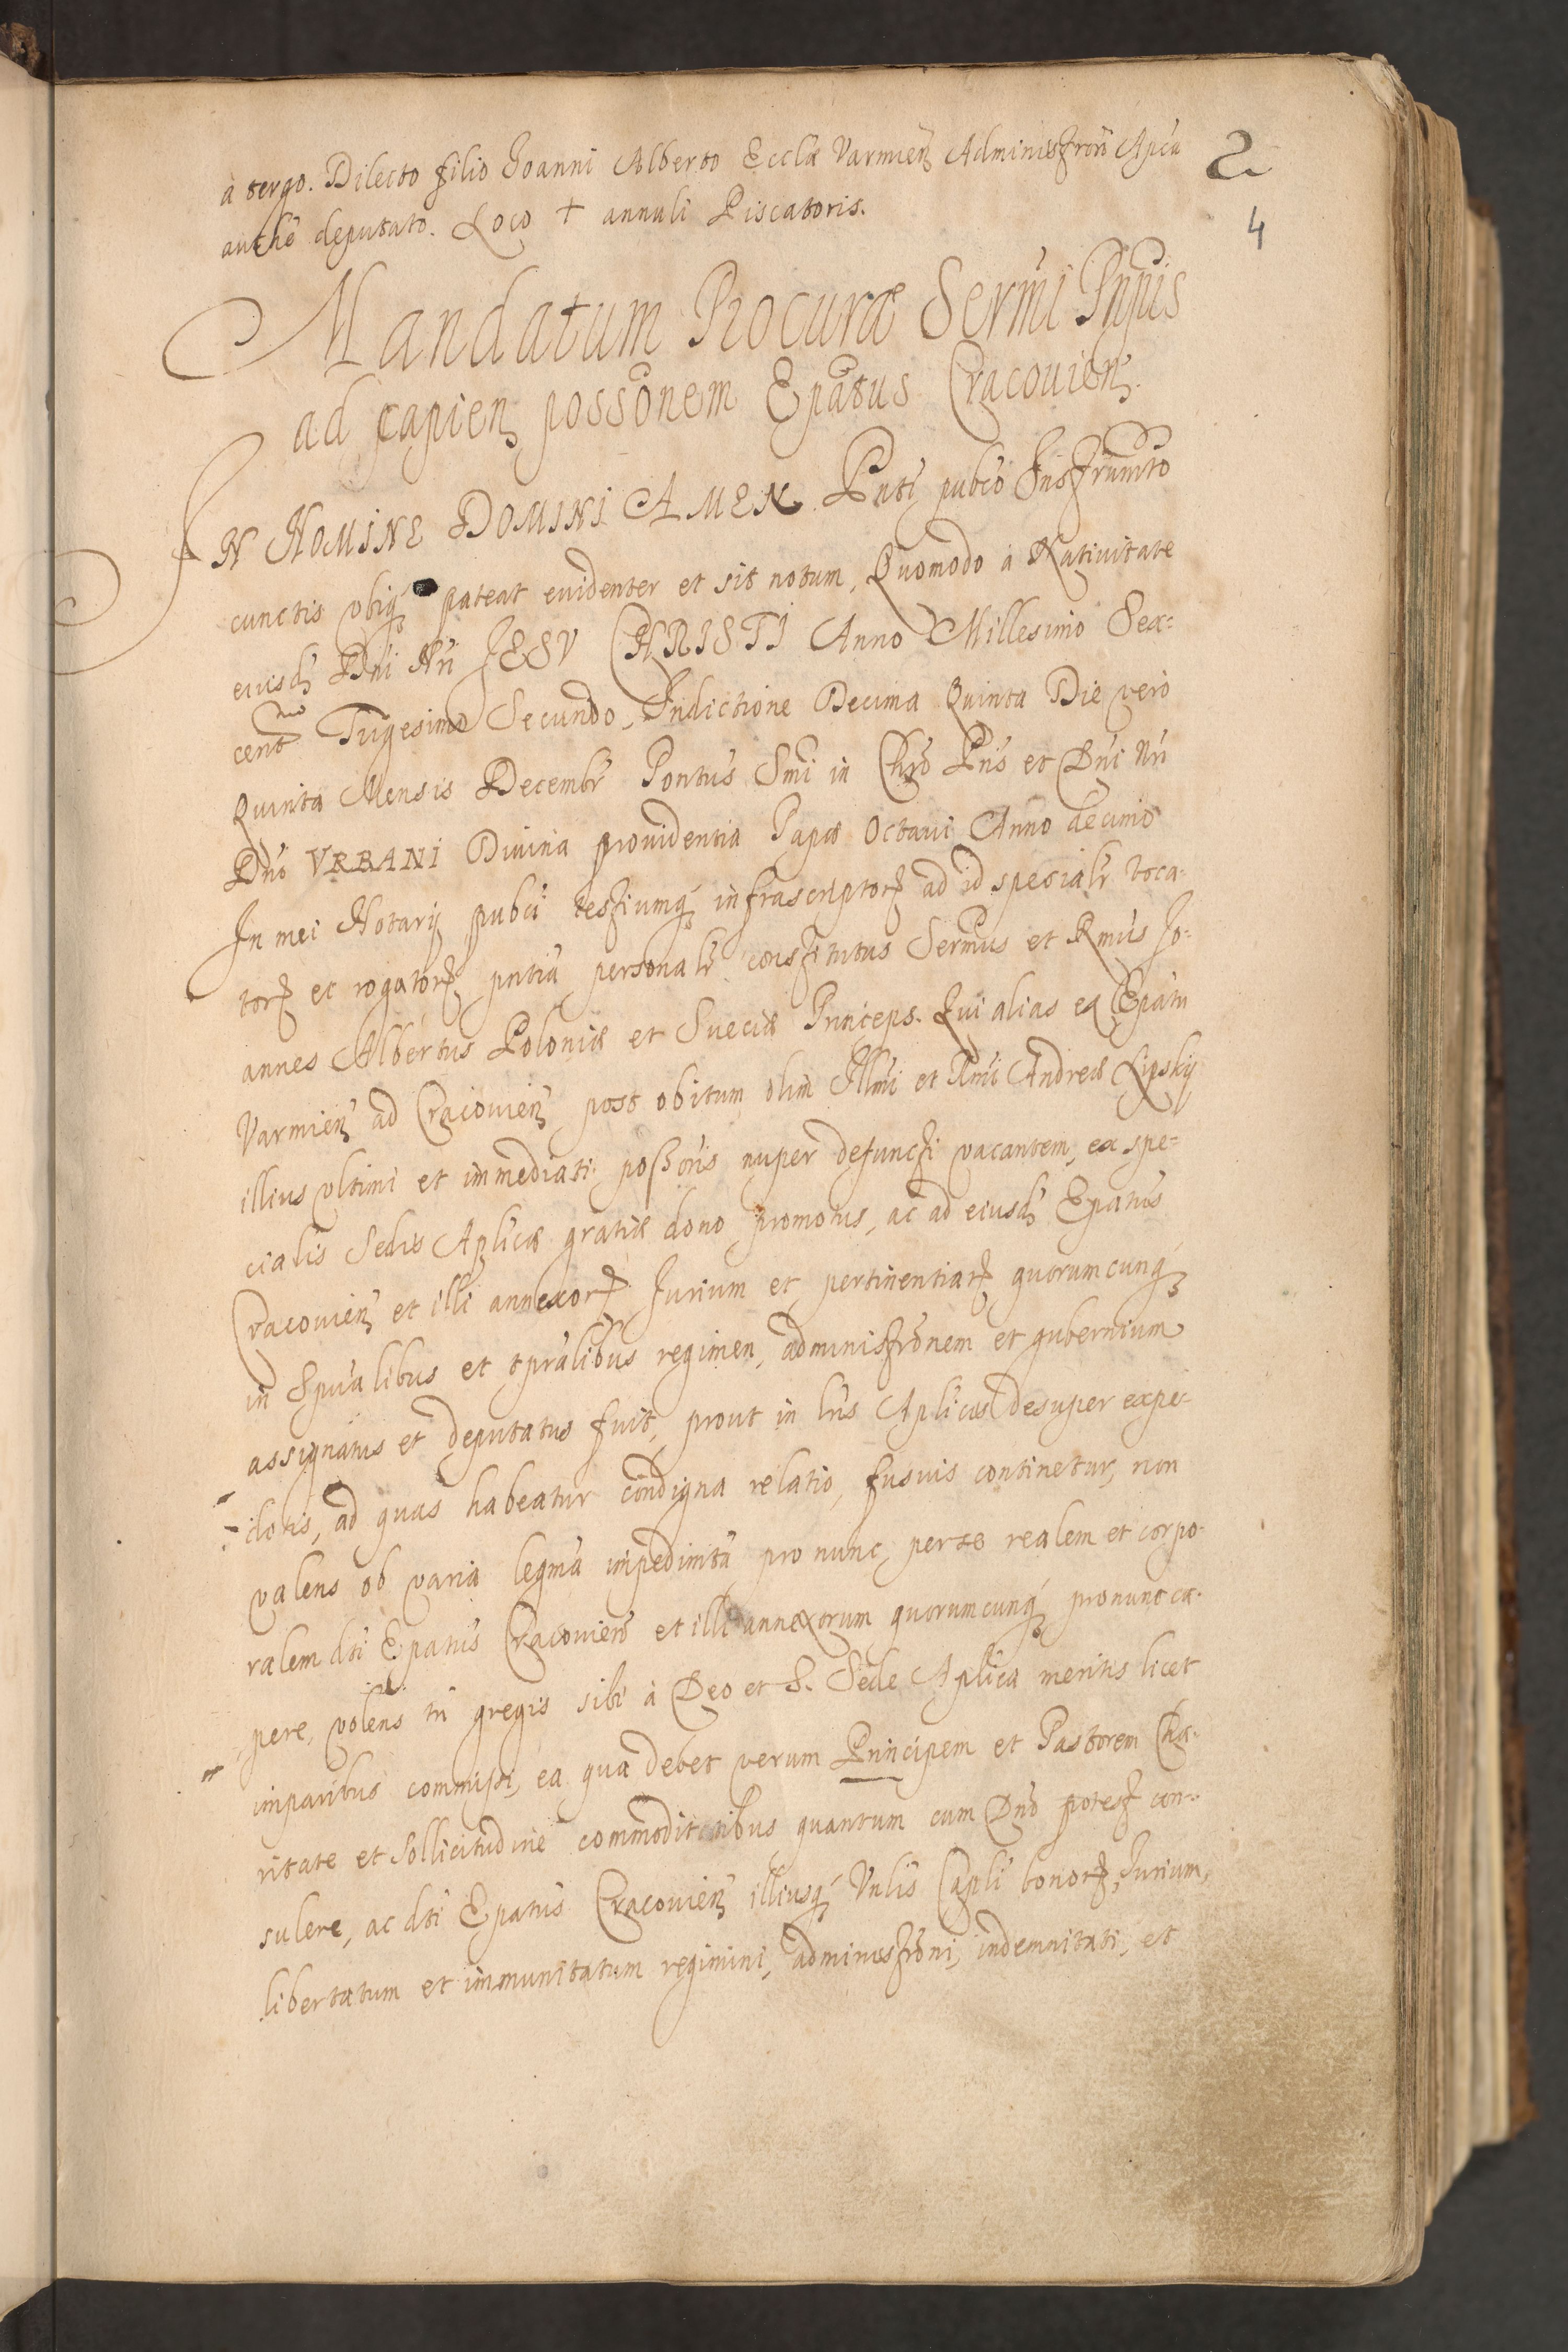 à tergo. Dilecto filio Joanni Alberto Ecclæ Varmień Administrori Aplca
2
authe deputato. Loco + annuli Piscatoris.
4
Mandatum Procuræ Sermi Pnpis
ad capień possonem Epatus Cracouień.
IN NOMINE DOMINI AMEN Pnti pubco Instrumto
cunctis vbiq́ pateat euidenter et sit notum, Quomodo à Natiuitate
eiusd Dni Nri JESV CHRISTI Anno Millesimo Sex-
centmo Trigesimo Secundo, Indictione Decima Quinta Die vero
Quinta Mensis Decembr Pontus Smi in Chro Pris et Dni Nri
Dno VRBANI Diuina prouidentia Papæ Octaui Anno decimo
In mei Notarij pubci testiumq́ infrascriptorꝝ ad id specialr voca-
torꝝ et rogatorꝝ pntia personalr constitutus Sermus et Rmus Jo-
annes Albertus Poloniæ et Sueciæ Princeps. Qui alias ex Epatu
Varmień ad Cracouień post obitum olim Illmi et Rmi Andreæ Lipskij
illius vltimi et immediati possoris nuper defuncti vacantem, ex spe-
cialis Sedis Aplicæ gratiæ dono promotus, ac ad eiusd Epatus
Cracouień et illi annexorꝝ Jurium et pertinentiarꝝ quorumcunq́
in Spualibus et tpralibus regimen, administronem et gubernium
assignatus et deputatus fuit, prout in lris Aplicis desuper expe-
ditis, ad quas habeatur condigna relatio, fusius continetur, non
valens ob varia legma impedimta pro nunc, per se realem et corpo-
ralem dti Epatus Cracouień et illi annexorum quorumcunq́ pronunc ca-
pere, volens tn gregis sibi à Deo et S. Sede Aplica meritis licet
imparibus commissi, ea qua debet verum Principem et Pastorem Cha-
ritate et Sollicitudine commoditatibus quantum cum Dno potest con-
sulere, ac dti Epatus Cracouień illiusq́ Vnlis Capli bonorꝝ, Jurium,
libertatum et immunitatum regimini, administroni, indemnitati, et